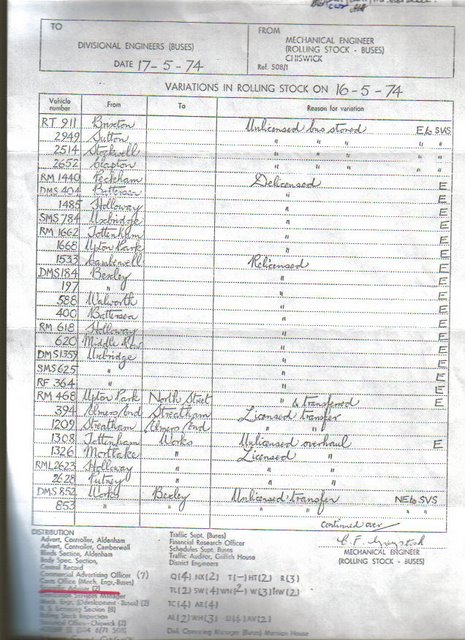 TO
DIVISIONAL ENGINEERS (BUSES)
DATE 17-5-74
FROM
MECHANICAL ENGINEER
(ROLLING STOCK - BUSES)
CHISWICK
Ref. 508/1
VARIATIONS IN ROLLING STOCK ON 16-5-74
Vehicle number From To Reason for variation
RT 911 Brixton Unlicensed bus stored E to SVS
2949 Sutton " " " " "
2514 Stockwell " " " " "
2652 Clapton " " " " "
RM 1440 Peckham Delicensed E
DMS 404 Battersea " E
1485 Holloway " E
SMS 784 Uxbridge " E
RM 1662 Tottenham " E
1668 Upton Park " E
1533 Camberwell Relicensed E
DMS 184 Bexley " E
197 " " E
588 Walworth " E
400 Battersea " E
RM 618 Holloway " E
620 Middle Row " E
DMS 1359 Uxbridge " E
SMS 625 " " E
RF 364 " " E
RM 468 Upton Park North Street " & transferred E
394 Elmers End Streatham Licensed transfer
1209 Streatham Elmers End " "
1308 Tottenham Works Unlicensed overhaul E
1326 Mortlake " Licensed "
RML 2623 Holloway " " "
2628 Putney " " "
DMS 852 Works Bexley Unlicensed transfer NE to SVS
853 " " " " " "
continued over
MECHANICAL ENGINEER
(ROLLING STOCK - BUSES)
DISTRIBUTION
Advert. Controller, Aldenham
Advert. Controller, Camberwell
Blinds Section, Aldenham
Body Spec. Section,
Central Record
Commercial Advertising Officer (7)
Costs Office (Mech. Engr. Buses)
Services Manager
Mech. Engr. (Development - Buses) (2)
Rolling Stock Inspection
Traffic Supt. (Buses)
Financial Research Officer
Schedules Supt. Buses
Traffic Audit, Griffith House
District Engineers